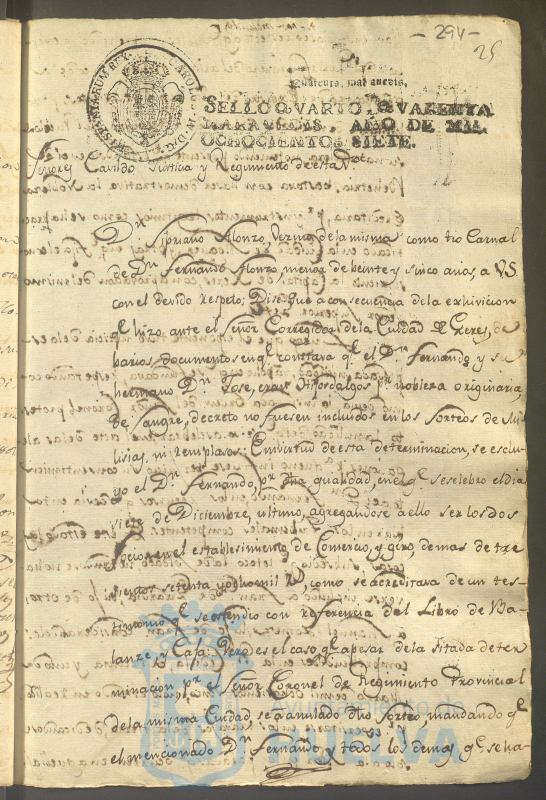 - 294 -
25
HISPANIARUM REX CAROLUS IV D G
Quarenta maravedis.
SELLO QVARTO, QVARENTA
MARAVEDIS, AÑO DE MIL
OCHOCIENTOS SIETE.
Señores Cavildo Justicia y Regimiento de esta V.ª
D.n Sipriano Alonzo, Vezino dela misma como tio Carnal
de D.n Fernando Alonzo, menor de beinte y sinco años, a VS
con el devido respeto; Dise que a consecuencia dela exhivicion
q.e hizo ante el Señor Corregidor dela Ciudad de Xeres, de
barios documentos en q.e constava q.e el D.n Fernando y su
hermano D.n Jose, eran Hijosdalgos p.r nobleza originaria
de sangre, decreto no fuesen incluidos en los Sorteos de Mi
lisias, ni remplasos: En virtud de esta determinacion, se esclu
yo el D.n Fernando, p.r dha qualidad, en el q.e se selebro el dia
siete de Disiembre, ultimo, agregandose a ello ser los dos
socios en el establesimiento de Comersio, y giro, de mas de tre
sientos setenta y ocho mil r.s, como se acreditava de un tes
timonio q.e se estendio con referencia del Libro de Va
lanze, y Caja: Pero es el caso q.e apesar dela sitada deter
minacion p.r el Señor Coronel de Regimiento Provincial
dela misma Ciudad, se a anulado dho Sorteo, mandando q.e
el mencionado D.n Fernando y todos los demas q.e se ha-
Ayuntamiento de
HUELVA